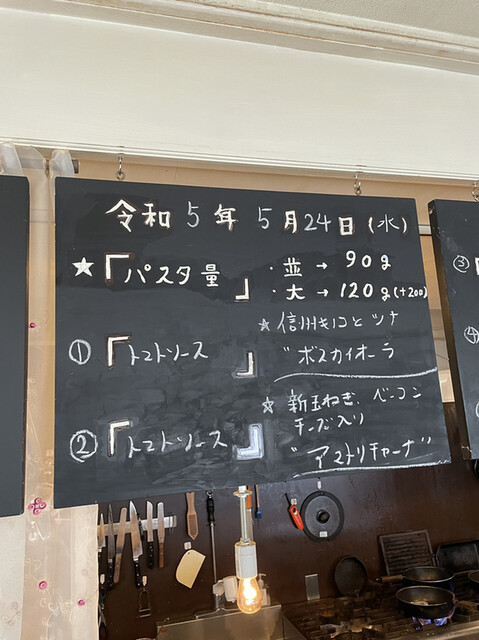 令和5年 5月24日(水)
★『パスタ量』 ・並 → 90g
・大 → 120g(+200)
①『トマトソース』 ☆信州きのことツナ
"ボスカイオーラ"
②『トマトソース』 ☆新玉ねぎ、ベーコン
チーズ入り
"アマトリチャーナ"
③
④